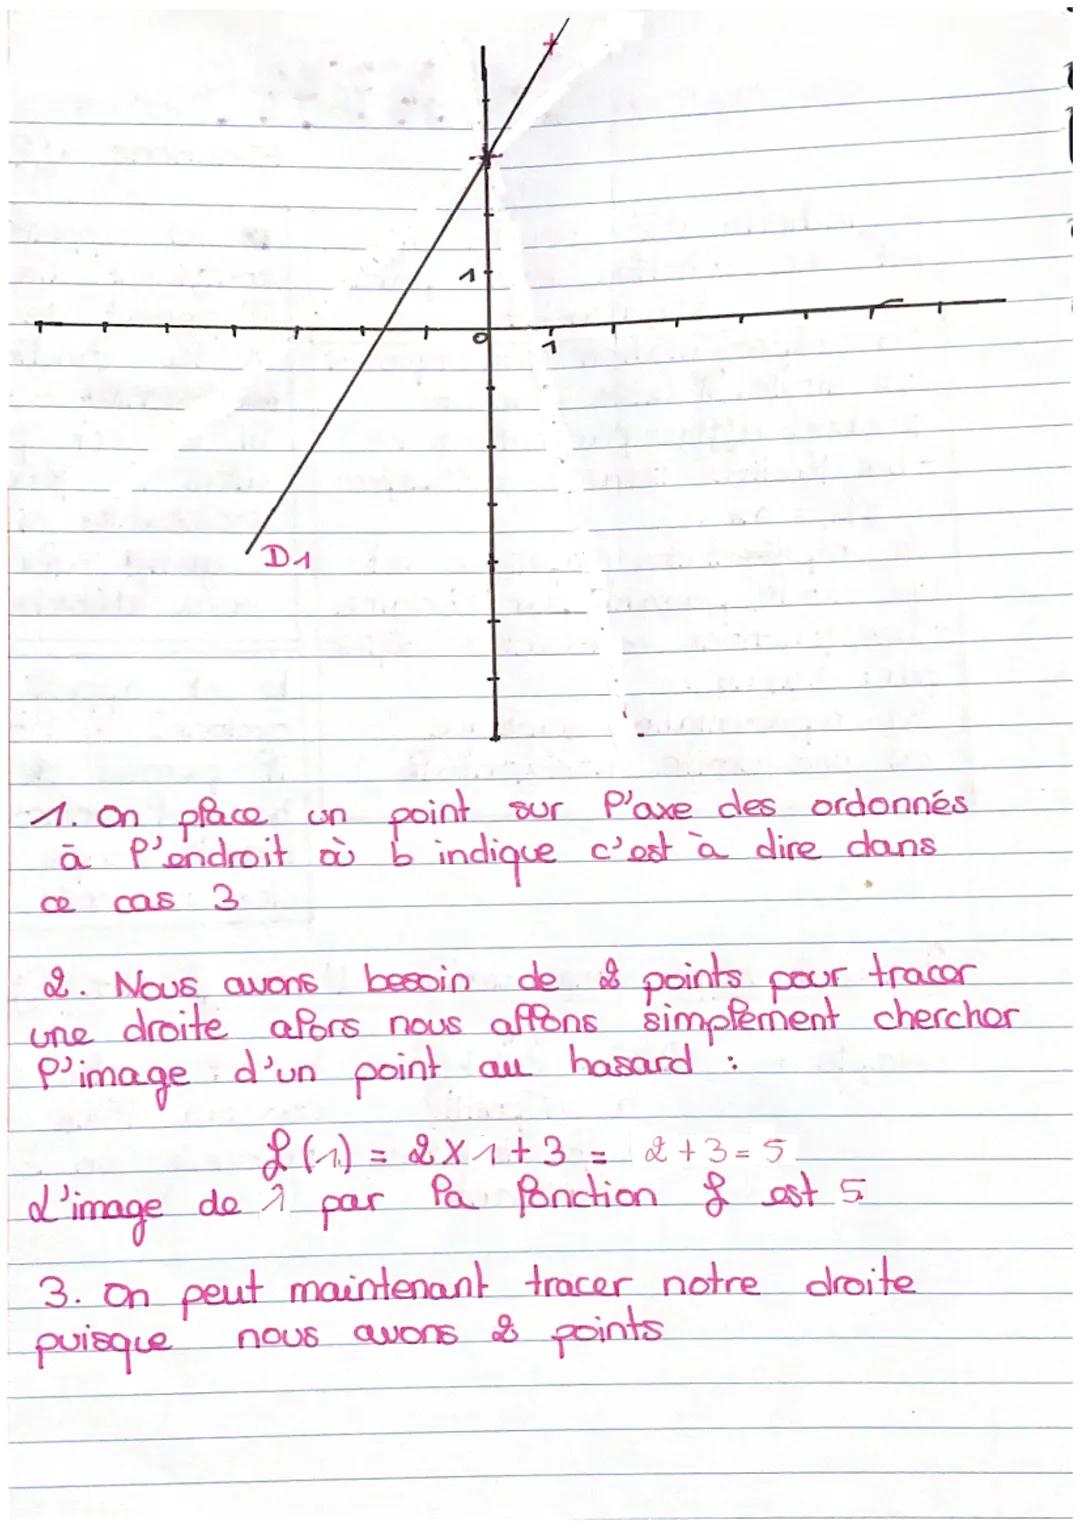 1
0
1
D1
1. On place un point sur l'axe des ordonnés
à l'endroit où b indique c'est à dire dans
ce cas 3
2. Nous avons besoin de 2 points pour tracer
une droite alors nous allons simplement chercher
l'image d'un point au hasard :
f(1) = 2 x 1 + 3 = 2 + 3 = 5
L'image de 1 par la fonction f est 5
3. On peut maintenant tracer notre droite
puisque nous avons 2 points